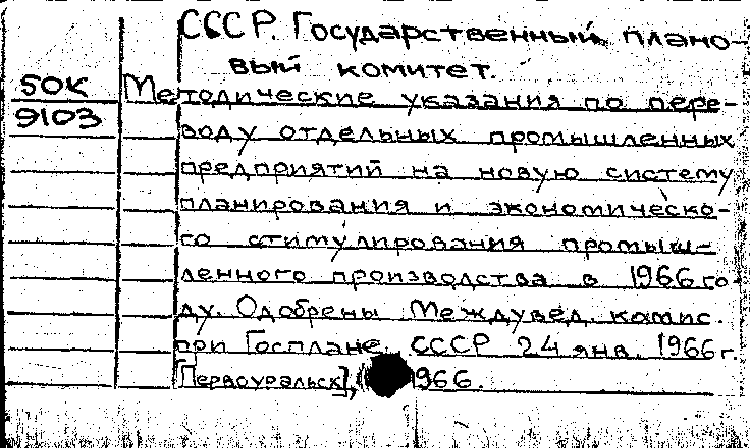 СССР. Государственный плано-
вый комитет.
50К
9103
Методические указания по пере-
воду отдельных промышленных
предприятий на новую систему
планирования и экономическо-
го стимулирования промыш-
ленного производства в 1966 го-
ду. Одобрены Междувед. комис.
при Госплане СССР 24 янв. 1966 г.
[Первоуральск], 1966.